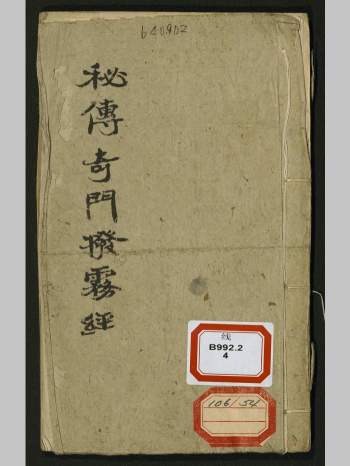 640902
秘傳奇門撥霧經
线
B992.2
4
106154